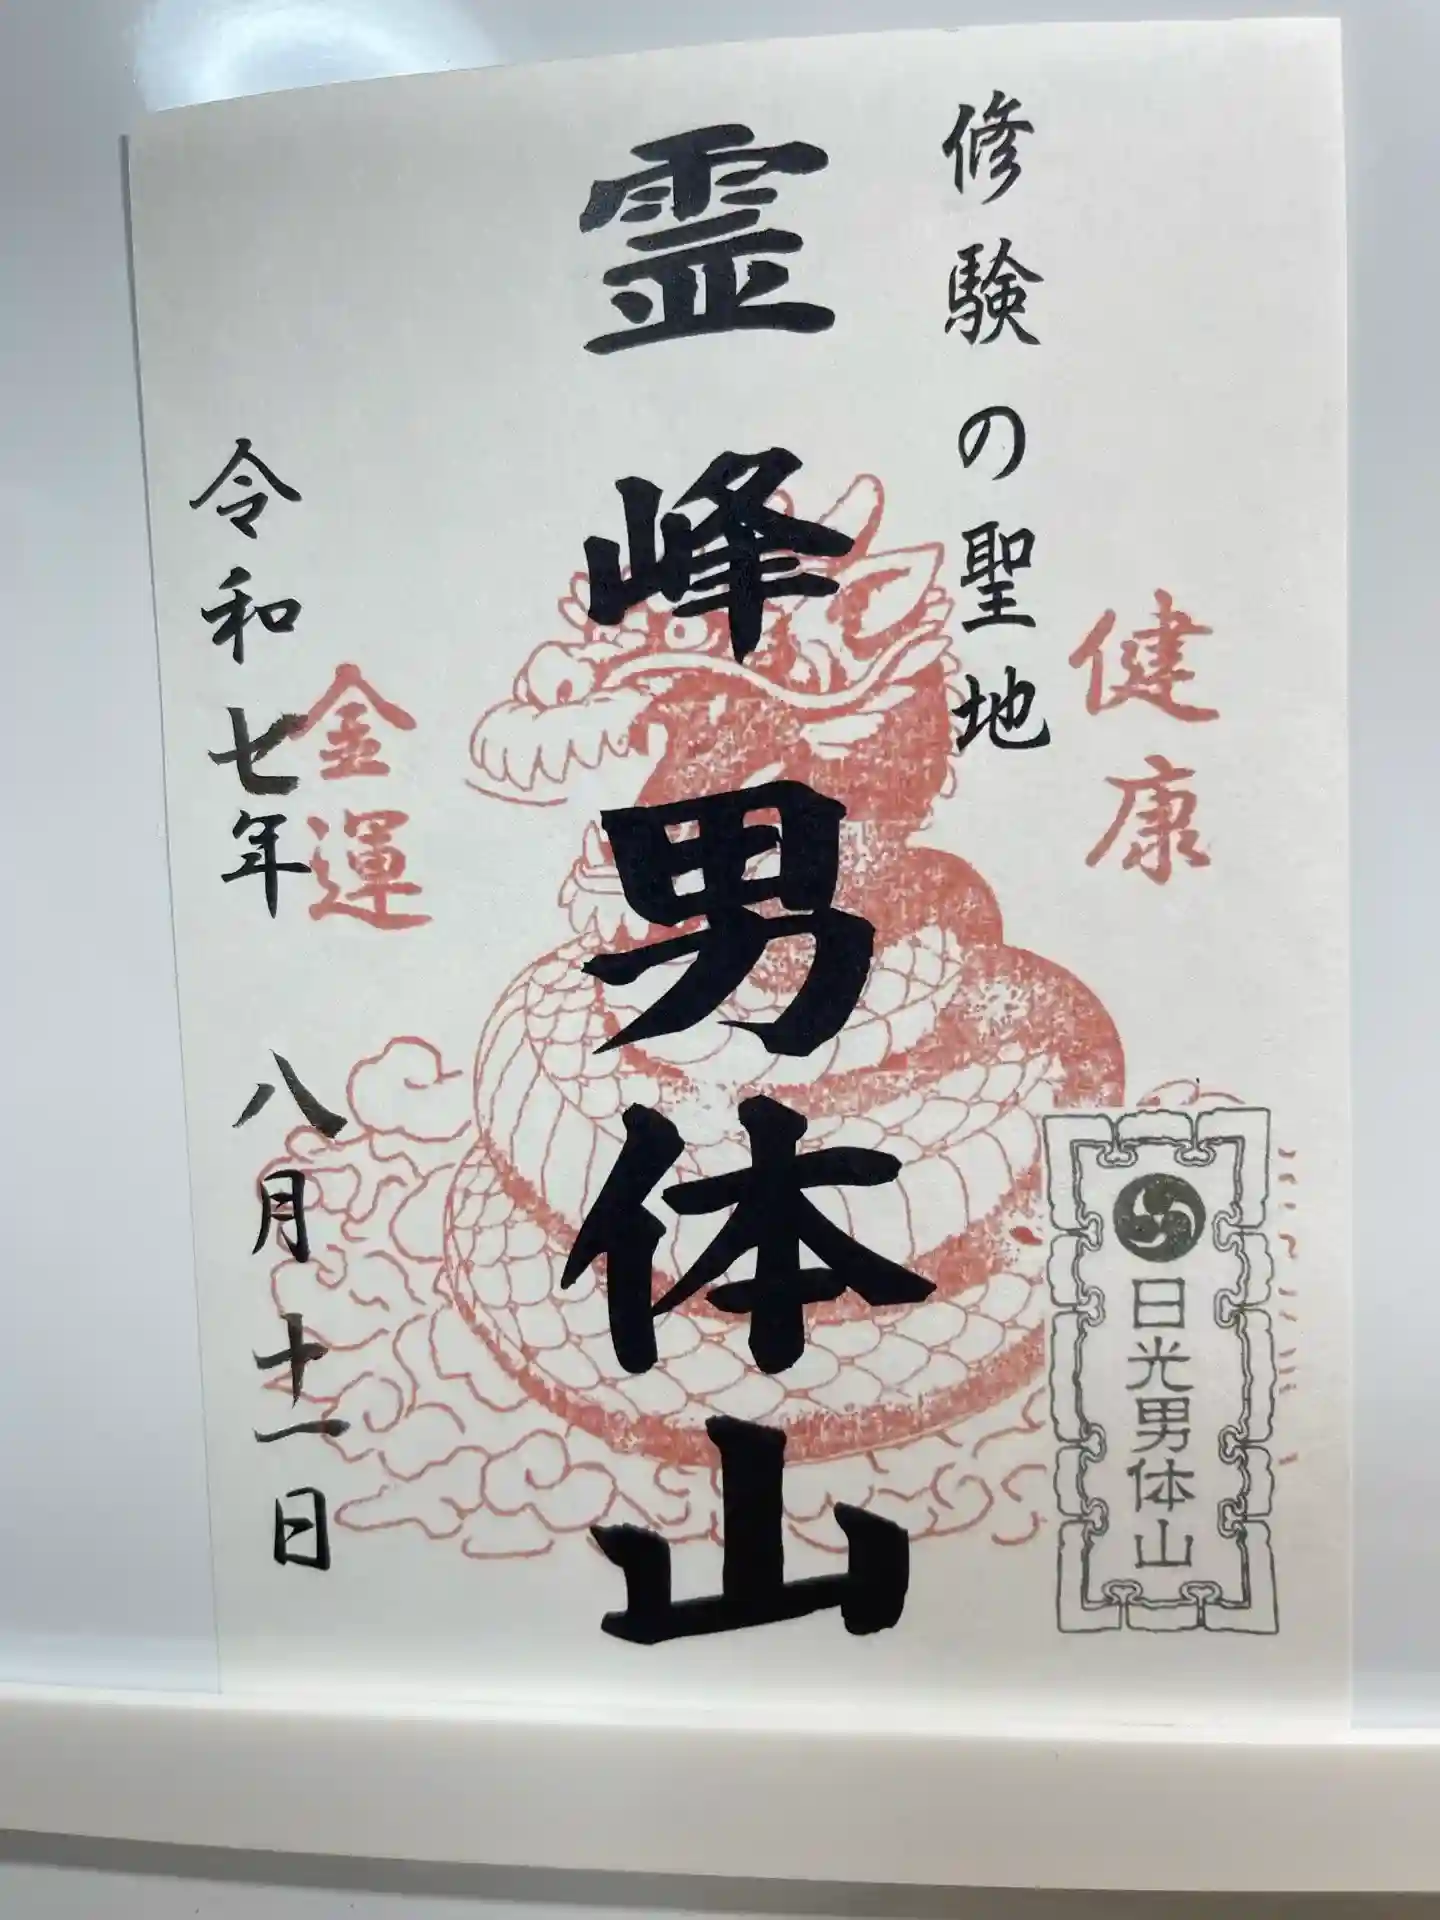 健康
修験の聖地
霊峰男体山
金運
令和七年 八月十一日
日光男体山